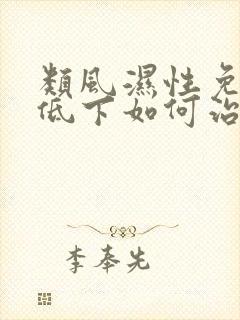 類風濕性免
低下如何治
李奉先